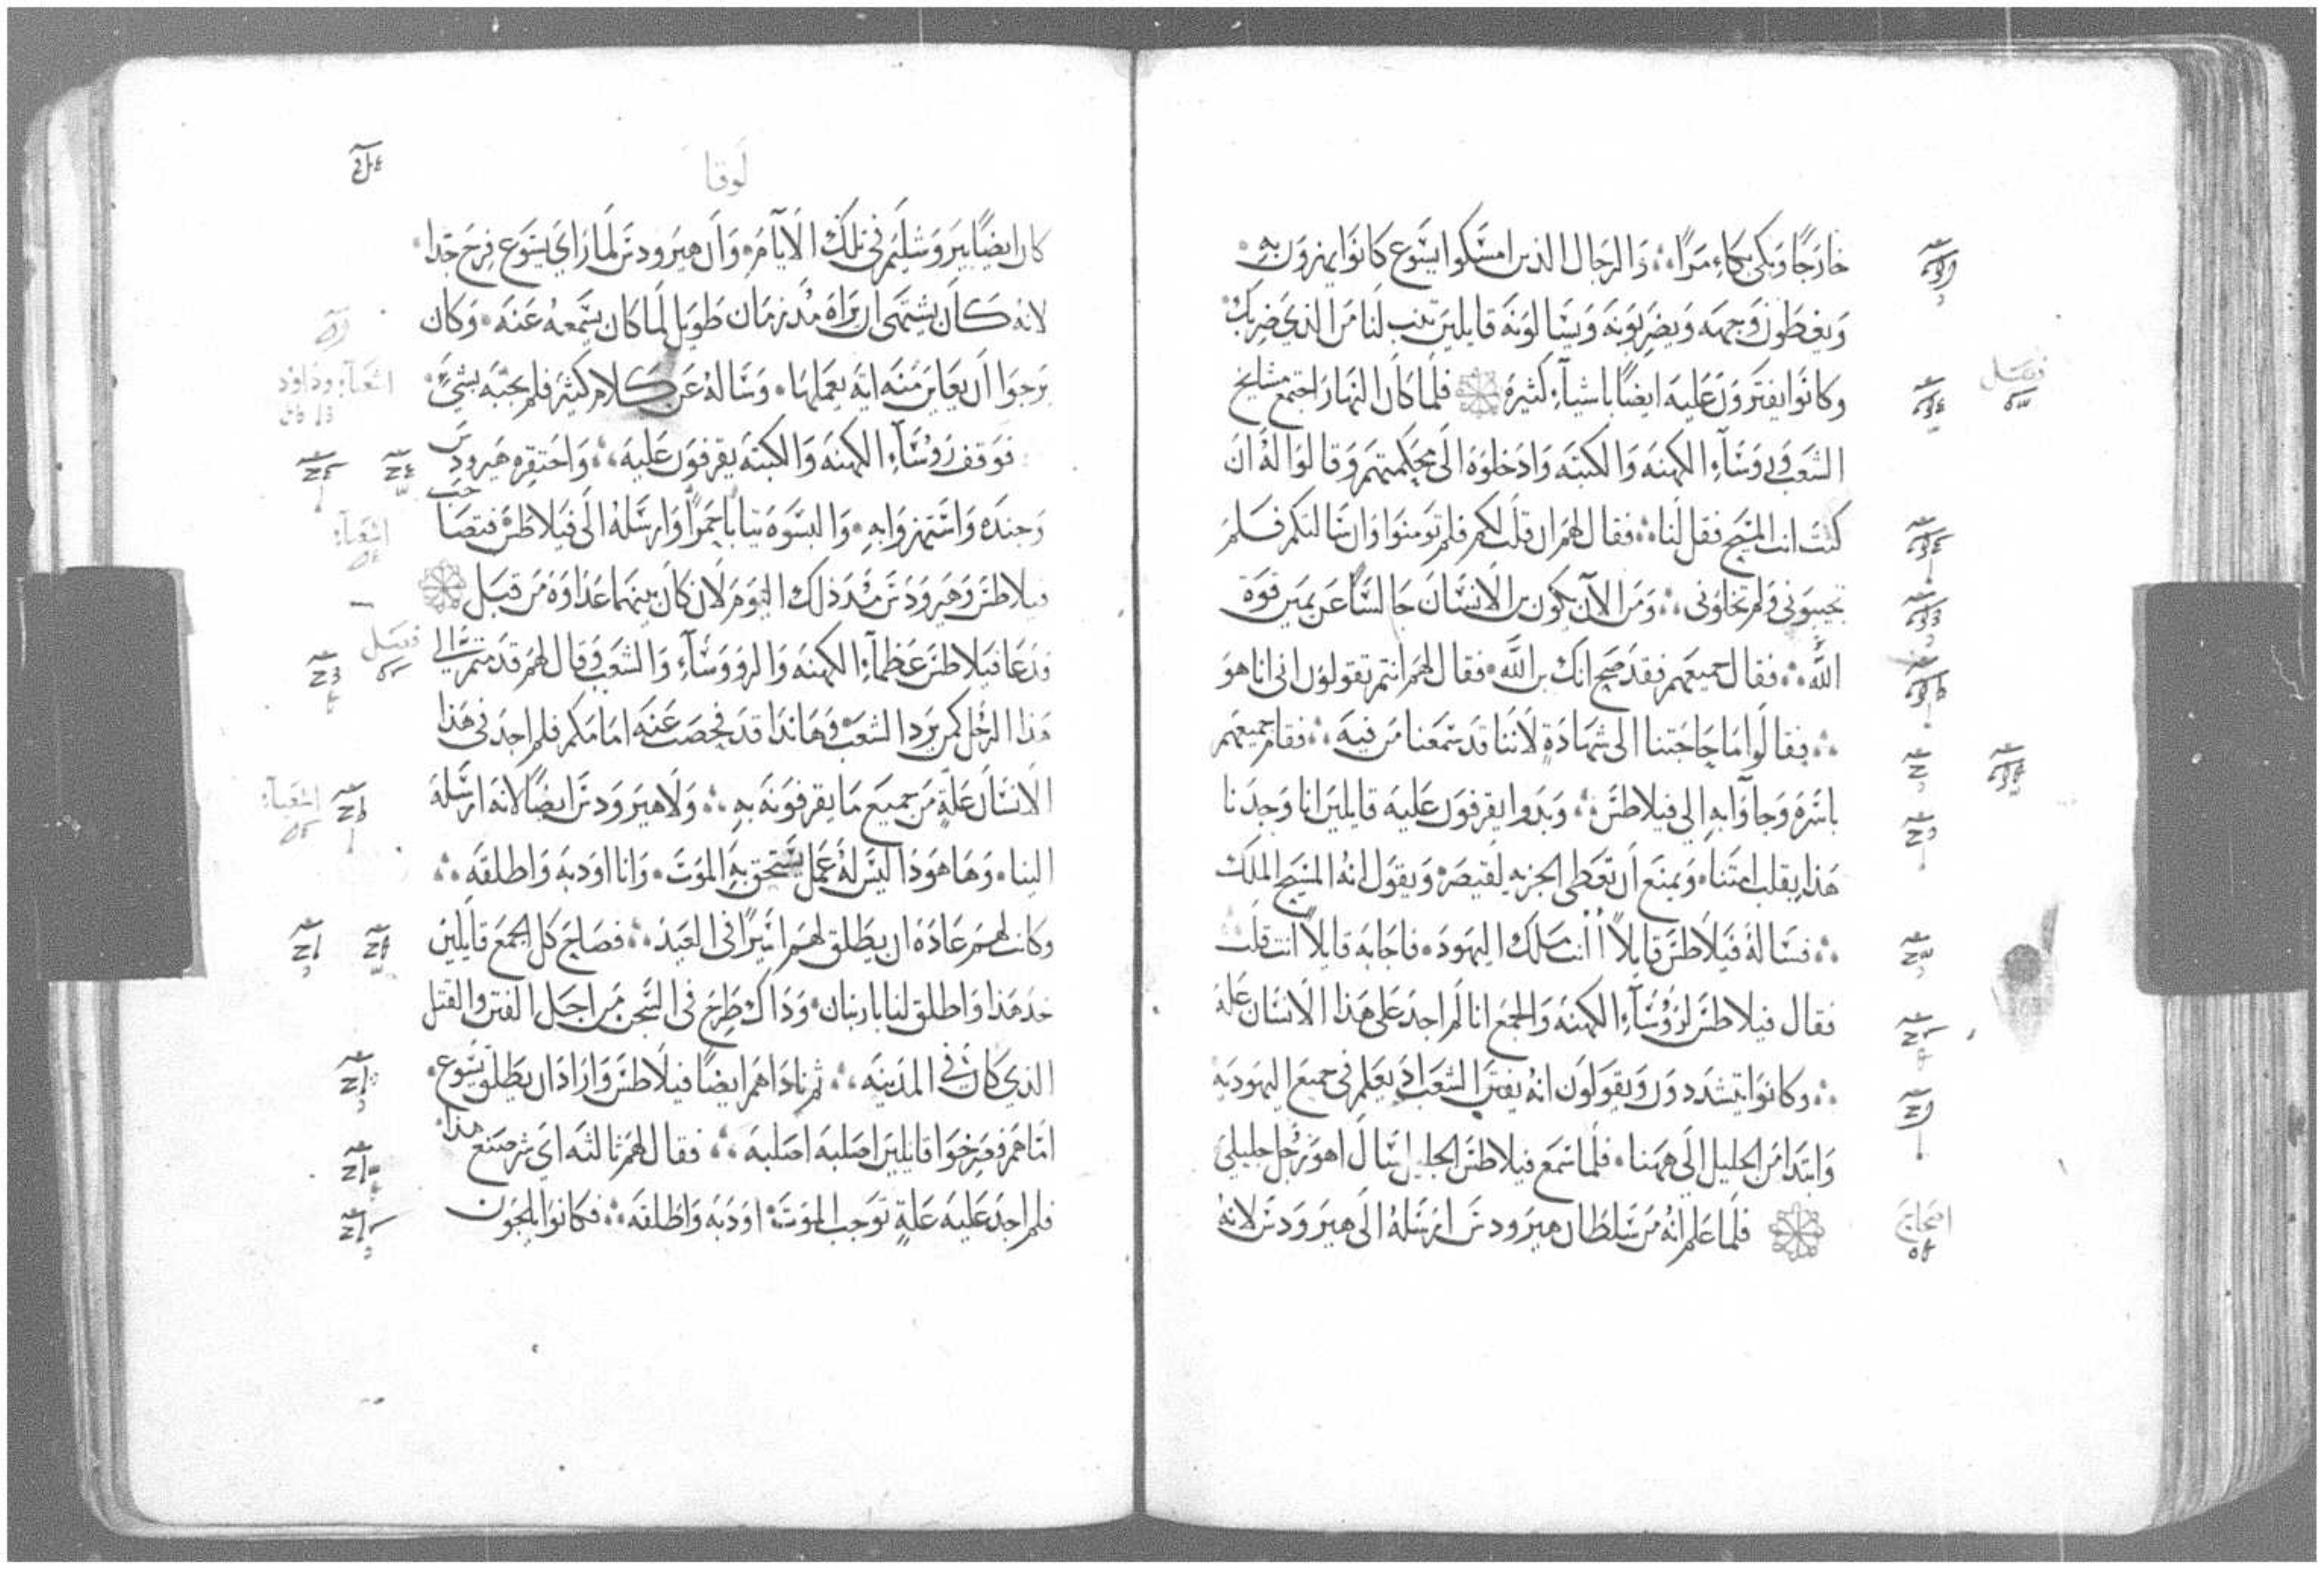 خارجًا وبكى بكاء مرًا ܀ والرجال الذين امسكوا يسوع كانوا يهزون به
ويغطون وجهه ويضربونه ويسالونه قايلين تنب لنا من الذي ضربك
وكانوا يفترون عليه ايضًا باشياء كثيرة فلما كان النهار اجتمع مشايخ
الشعب وروساء الكهنه والكتبه وادخلوه الى محكمتهم وقالوا له ان
كنت انت المسيح فقل لنا فقال لهم ان قلت لكم فلم تومنوا وان سالتكم فلم
تجيبوني ولم تخلوني ومن الان يكون بن الانسان جالسًا عن يمين قوة
الله فقال جميعهم فقد صح انك بن الله فقال لهم انتم تقولون اني انا هو
فقالوا ما حاجتنا الى شهادةٍ لاننا قد سمعنا من فيه فقام جميعهم
باسره وجآوا به الى فيلاطس وبدوا يقرفون عليه قايلين انا وجدنا
هذا يقلب امتنا ويمنع ان تعطى الجزيه لقيصر ويقول انه المسيح الملك
فساله فيلاطس قايلاً أانت ملك اليهود فاجابه قايلاً انت قلت
فقال فيلاطس لروساء الكهنه والجمع انا لم اجد على هذا الانسان عله
وكانوا يتشددون ويقولون انه يفتن الشعب اذ يعلم في جميع اليهوديه
وابتدا من الجليل الى ههنا فلما سمع فيلاطس الجليل سال اهو رجل جليلي
فلما علم انه من سلطان هيرودس ارسله الى هيرودس لانه
فصل
اصحاح
لوقا
كان ايضًا بيروشليم في تلك الايام وان هيرودس لما راي يسوع فرح جدا
لانه كان يشتهى ان يراه مذ زمان طويل لما كان يسمعه عنه وكان
يرجوا ان يعاين منه ايه يعملها وساله عن كلام كثير فلم يجبه بشيٍ
فوقف روساء الكهنه والكتبه يقرفون عليه واحتقره هيرودس
وجنده واستهزوا به والبسوه ثيابًا حمرًا وارسله الى فيلاطس فتصاحب
فيلاطس وهيرودس مذ ذلك اليوم لان كان بينهما عداوه من قبل
فدعا فيلاطس عظماء الكهنه والروساء والشعب وقال لهم قد متم الي
هذا الرجل كمن يرد الشعب وهاندا قد فحصت عنه امامكم فلم اجد في هذا
الانسان علةٍ من جميع ما يقرفونه به ولا هيرودس ايضًا لانه ارسله
الينا وها هوذا ليس له عمل يستحق به الموت وانا اودبه واطلقه
وكانت لهم عاده ان يطلق لهم اسيرًا في العيد فصاح كل الجمع قايلين
خذ هذا واطلق لنا بارنبان وذاك طرح في السجن من اجل الفتن والقتل
الذي كان في المدينه ثم ناداهم ايضًا فيلاطس واراد ان يطلق يسوع
اما هم فصرخوا قايلين اصلبه اصلبه فقال لهم ثالثه اي شر صنع هذا
فلم اجد عليه علةٍ توجب الموت اودبه واطلقه فكانوا يلجون
اشعياء وداود
اشعياء
فصل
اشعياء